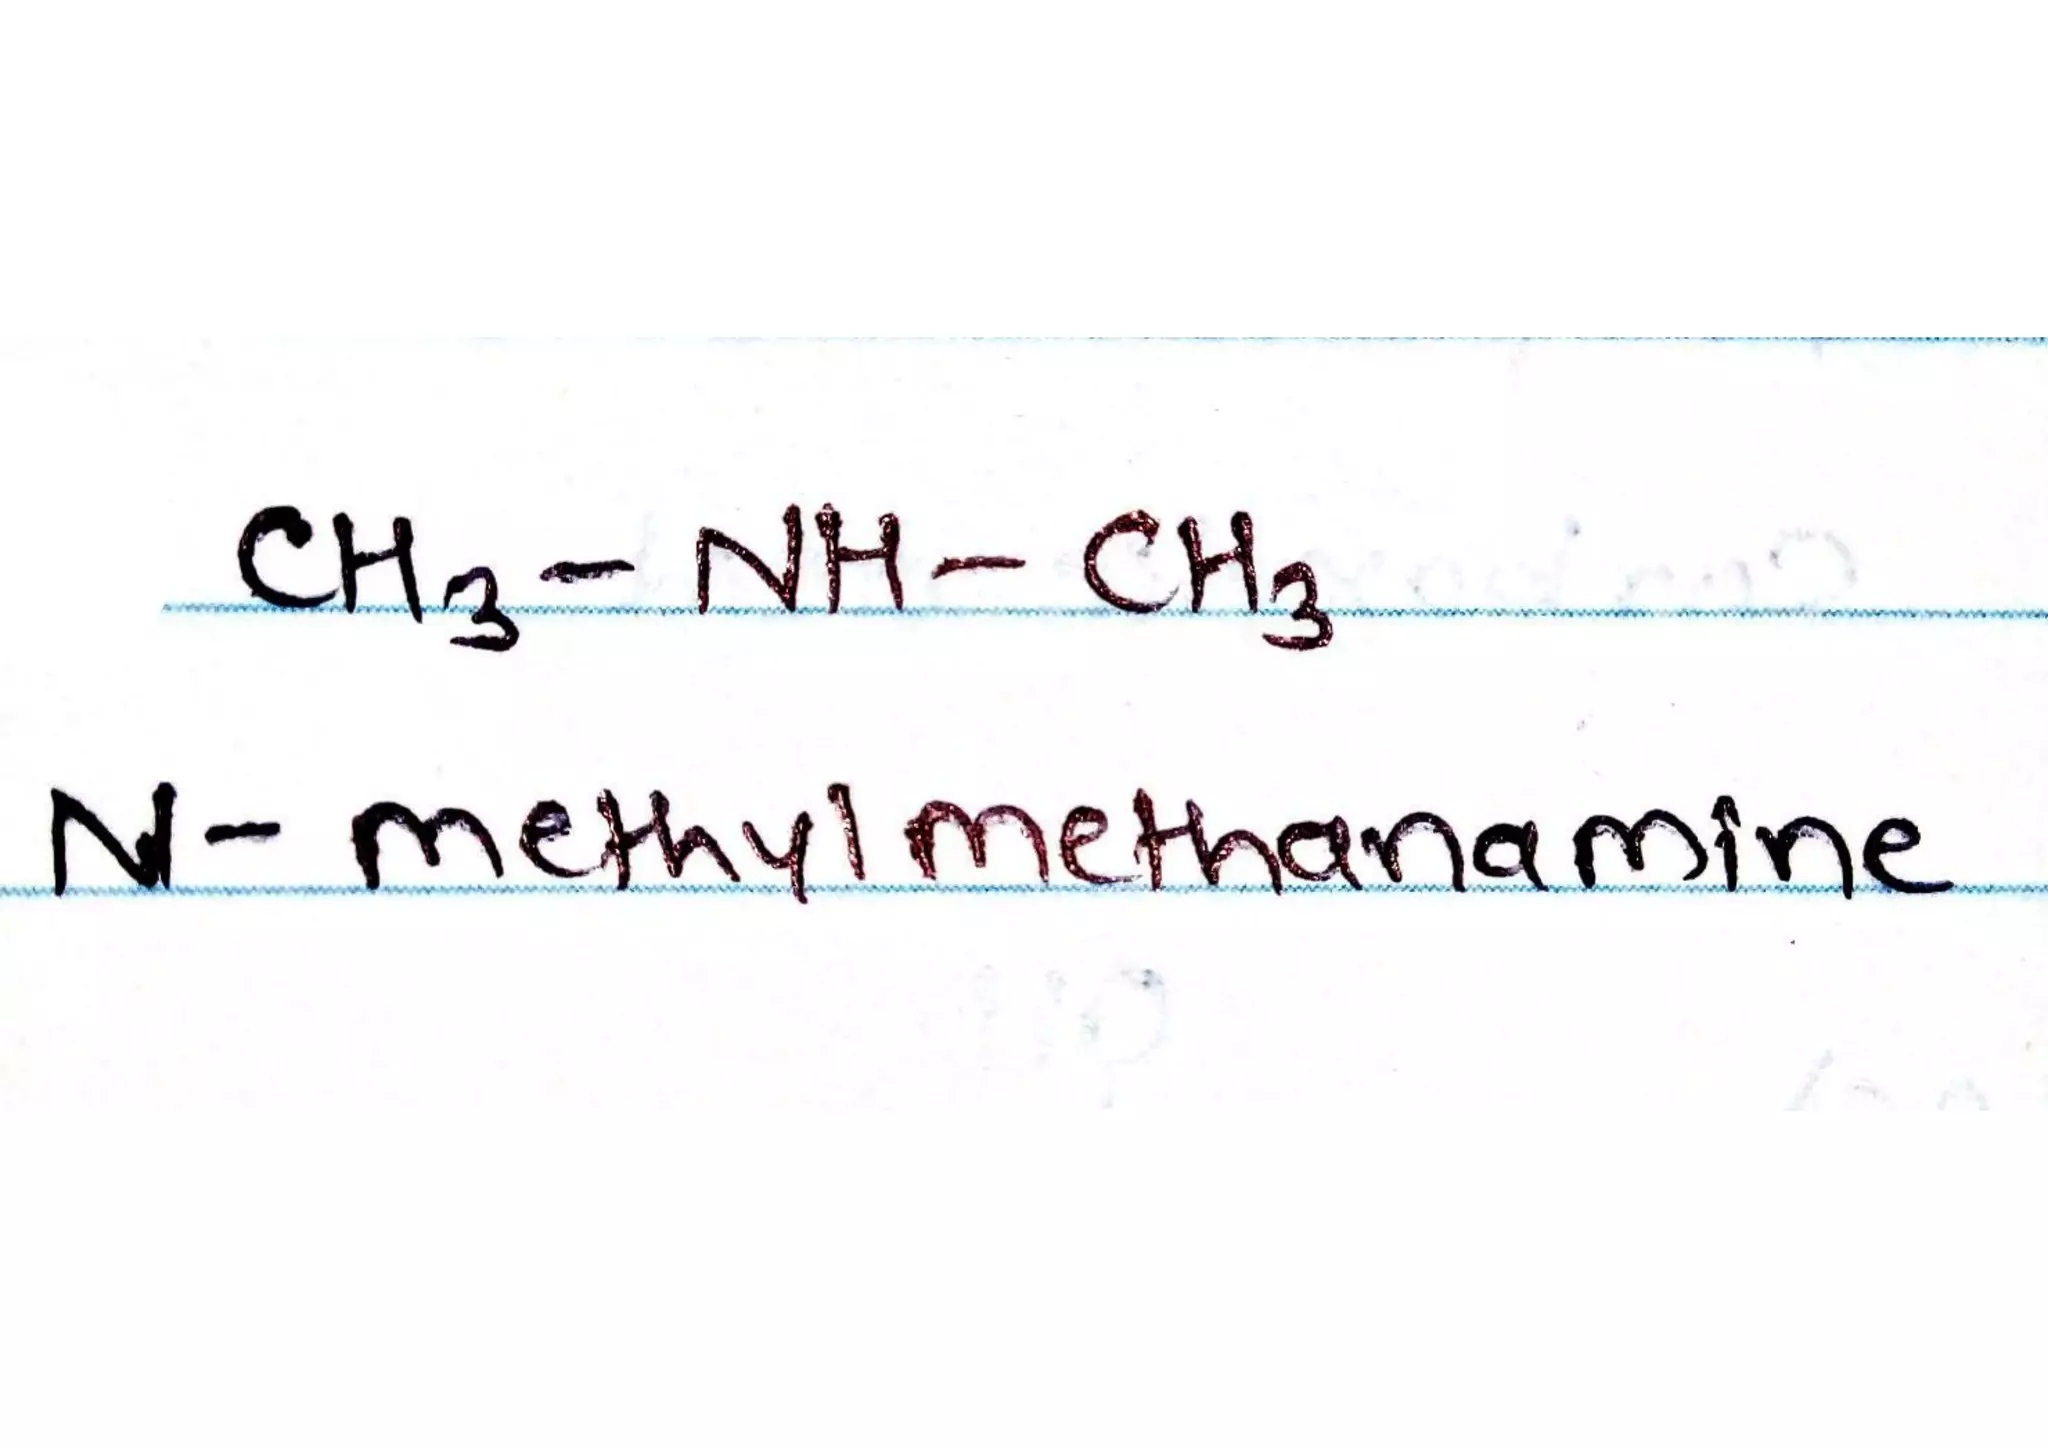 CH₃ – NH – CH₃
N- methyl methanamine